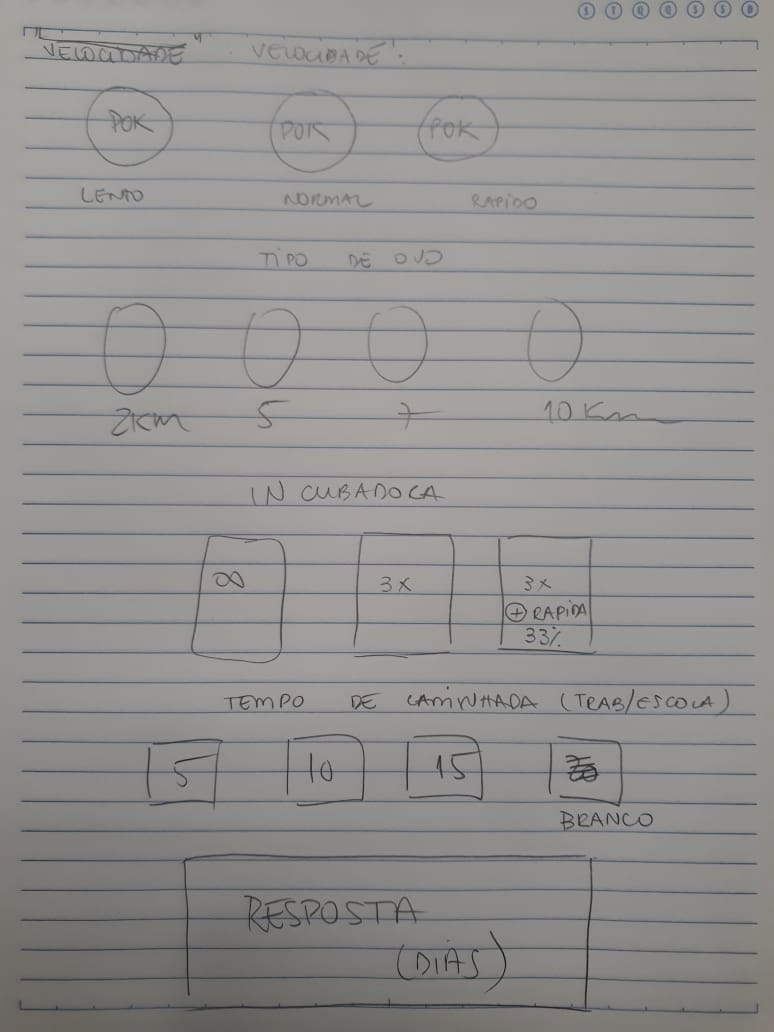 S T Q Q S S D
"VELOCIDADE" VELOCIDADE:
POK POK POK
LENTO NORMAL RAPIDO
TIPO DE OVO
2Km 5 7 10 Km
INCUBADORA
∞ 3x 3x
+ RAPIDA
33%
TEMPO DE CAMINHADA (TRAB/ESCOLA)
5 10 15
BRANCO
RESPOSTA
(DIAS)